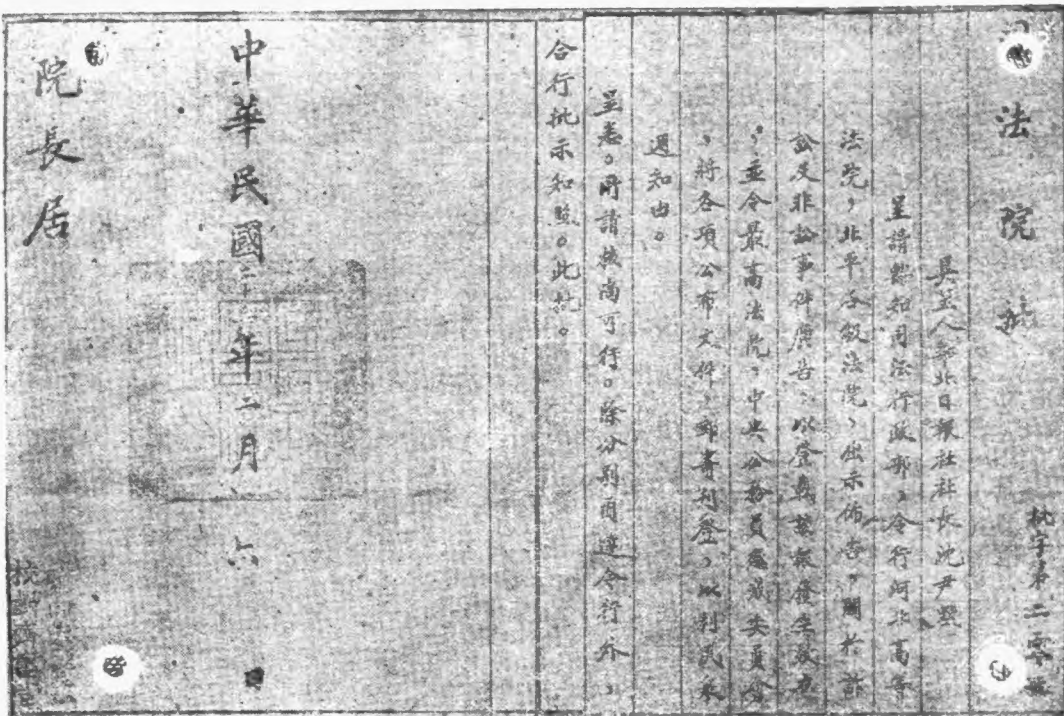 法院批
批字第二零號
具呈人華北日報社社長沈尹默
呈請轉知司法行政部，令行河北高等
法院，北平各級法院，出示佈告，關於訴
訟及非訟事件廣告，以登載該報發生效力
，並令最高法院，中央公務員懲戒委員會
，將各項公布文件，郵寄刊登，以利民衆
週知由。
呈悉。所請核尚可行。除分別函達令行外，
合行批示知照。此批。
中華民國二十年二月六
院長居